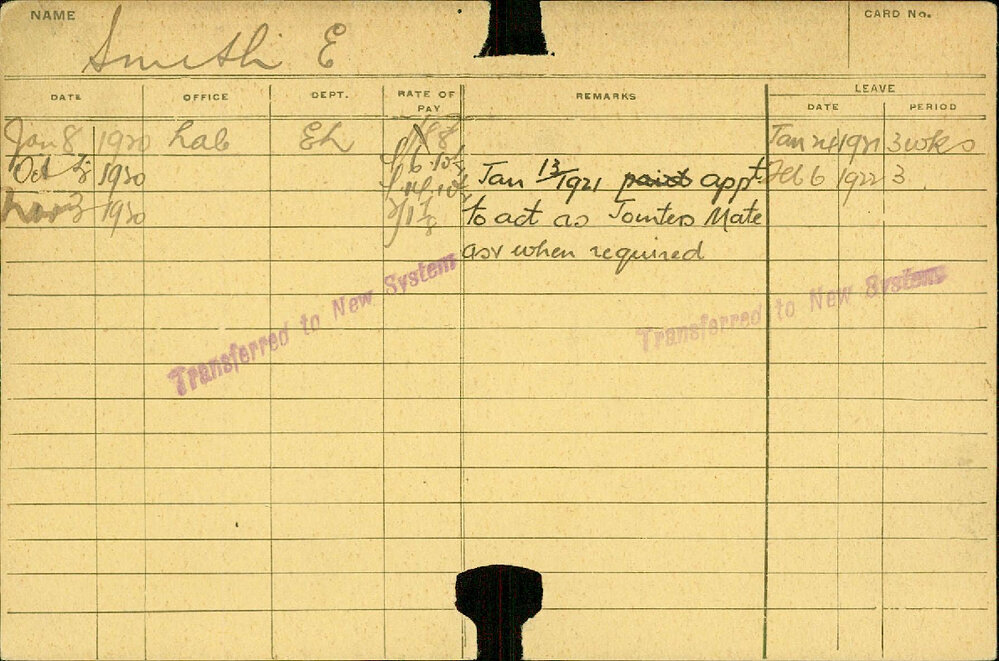 NAME
CARD No.
Smith E
DATE OFFICE DEPT. RATE OF PAY REMARKS LEAVE
DATE PERIOD
Jan 8 1920 Lab EL Jan 24 1921 3 wks
Oct 1920 Jan 13/1921 appt. Feb 6 1922 3
1920 to act as Jointers Mate
as & when required
Transferred to New System
Transferred to New System